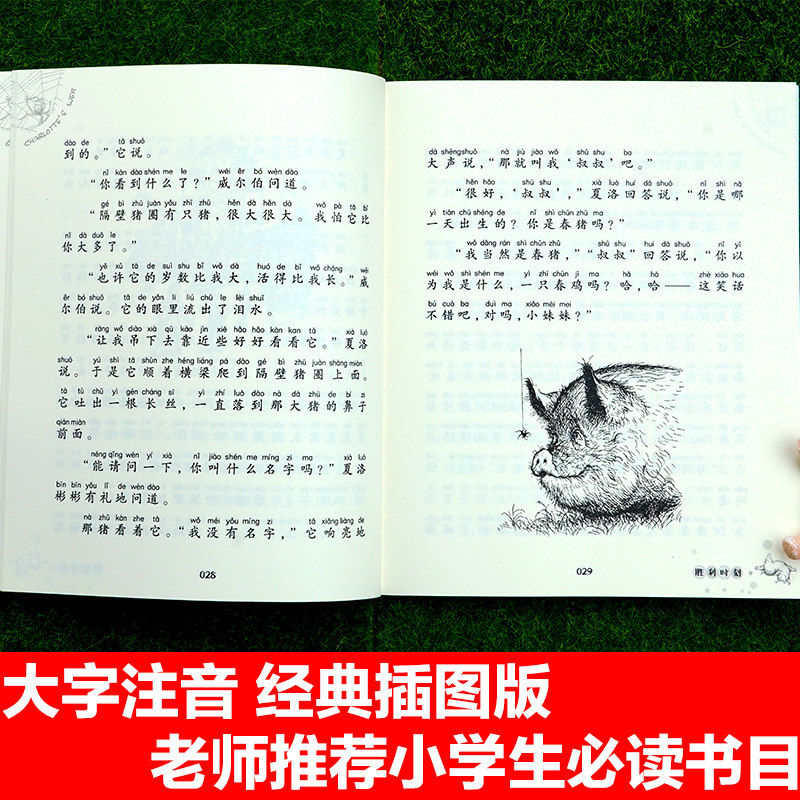 CHARLOTTE'S WEB
dào de tā shuō
到的。”它说。
nǐ kàn dào shén me le wēi ěr bó wèn dào
“你看到什么了？”威尔伯问道。
gé bì zhū juàn yǒu zhī zhū hěn dà hěn dà wǒ pà tā bǐ
“隔壁猪圈有只猪，很大很大。我怕它比
nǐ dà duō le
你大多了。”
yě xǔ tā de suì shu bǐ wǒ dà huó de bǐ wǒ cháng wēi
“也许它的岁数比我大，活得比我长。”威
ěr bó shuō tā de yǎn li liú chū le lèi shuǐ
尔伯说。它的眼里流出了泪水。
ràng wǒ diào xià qù kào jìn xiē hǎo hǎo kàn kan tā xià luò
“让我吊下去靠近些好好看看它。”夏洛
shuō yú shì tā shùn zhe héng liáng pá dào gé bì zhū juàn shàng miàn
说。于是它顺着横梁爬到隔壁猪圈上面。
tā tǔ chū yì gēn cháng sī yì zhí luò dào nà dà zhū de bí zi
它吐出一根长丝，一直落到那大猪的鼻子
qián miàn
前面。
néng qǐng wèn yí xià nǐ jiào shén me míng zi ma xià luò
“能请问一下，你叫什么名字吗？”夏洛
bīn bīn yǒu lǐ de wèn dào
彬彬有礼地问道。
nà zhū kàn zhe tā wǒ méi yǒu míng zi tā xiǎng liàng de
那猪看着它。“我没有名字，”它响亮地
028
dà shēng shuō nà jiù jiào wǒ shū shu ba
大声说，“那就叫我‘叔叔’吧。”
hěn hǎo shū shu xià luò huí dá shuō nǐ shì nǎ
“很好，‘叔叔’，”夏洛回答说，“你是哪
yì tiān chū shēng de nǐ shì chūn zhū ma
一天出生的？你是春猪吗？”
wǒ dāng rán shì chūn zhū shū shu huí dá shuō nǐ yǐ
“我当然是春猪，”“叔叔”回答说，“你以
wéi wǒ shì shén me yì zhī chūn jī ma hā hā zhè xiào hua
为我是什么，一只春鸡吗？哈，哈——这笑话
bú cuò ba duì ma xiǎo mèi mei
不错吧，对吗，小妹妹？”
029
胜利时刻
大字注音 经典插图版
老师推荐小学生必读书目